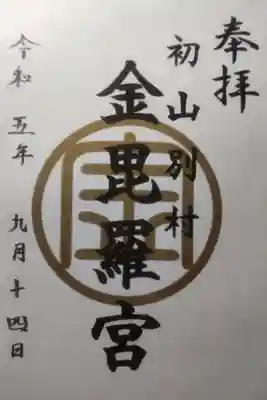 奉拝
初山別村
金毘羅宮
令和五年 九月十四日